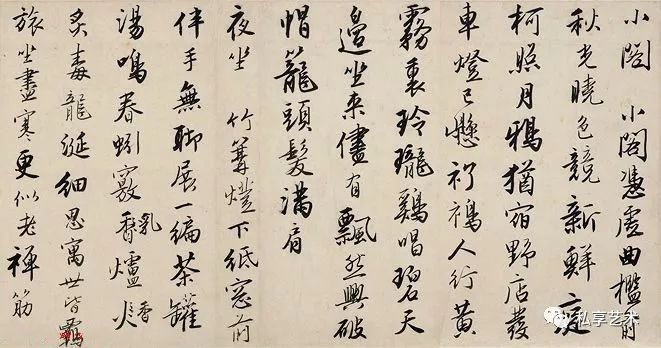 小閣 小閣憑虛曲檻前
秋光曉色競新鮮庭
柯照月鴉猶宿野店發
車燈已懸襫人行黃
霧裏玲瓏鷄唱碧天
邊坐来儘有飄然興破
帽籠頭髮滿肩
夜坐 竹篝燈下紙窓前
伴手無聊展一編茶罐
湯鳴春蚓竅香乳爐火香
炙毒龍涎細思寓世皆羈
旅坐盡寒更似老禪筋
私享艺术